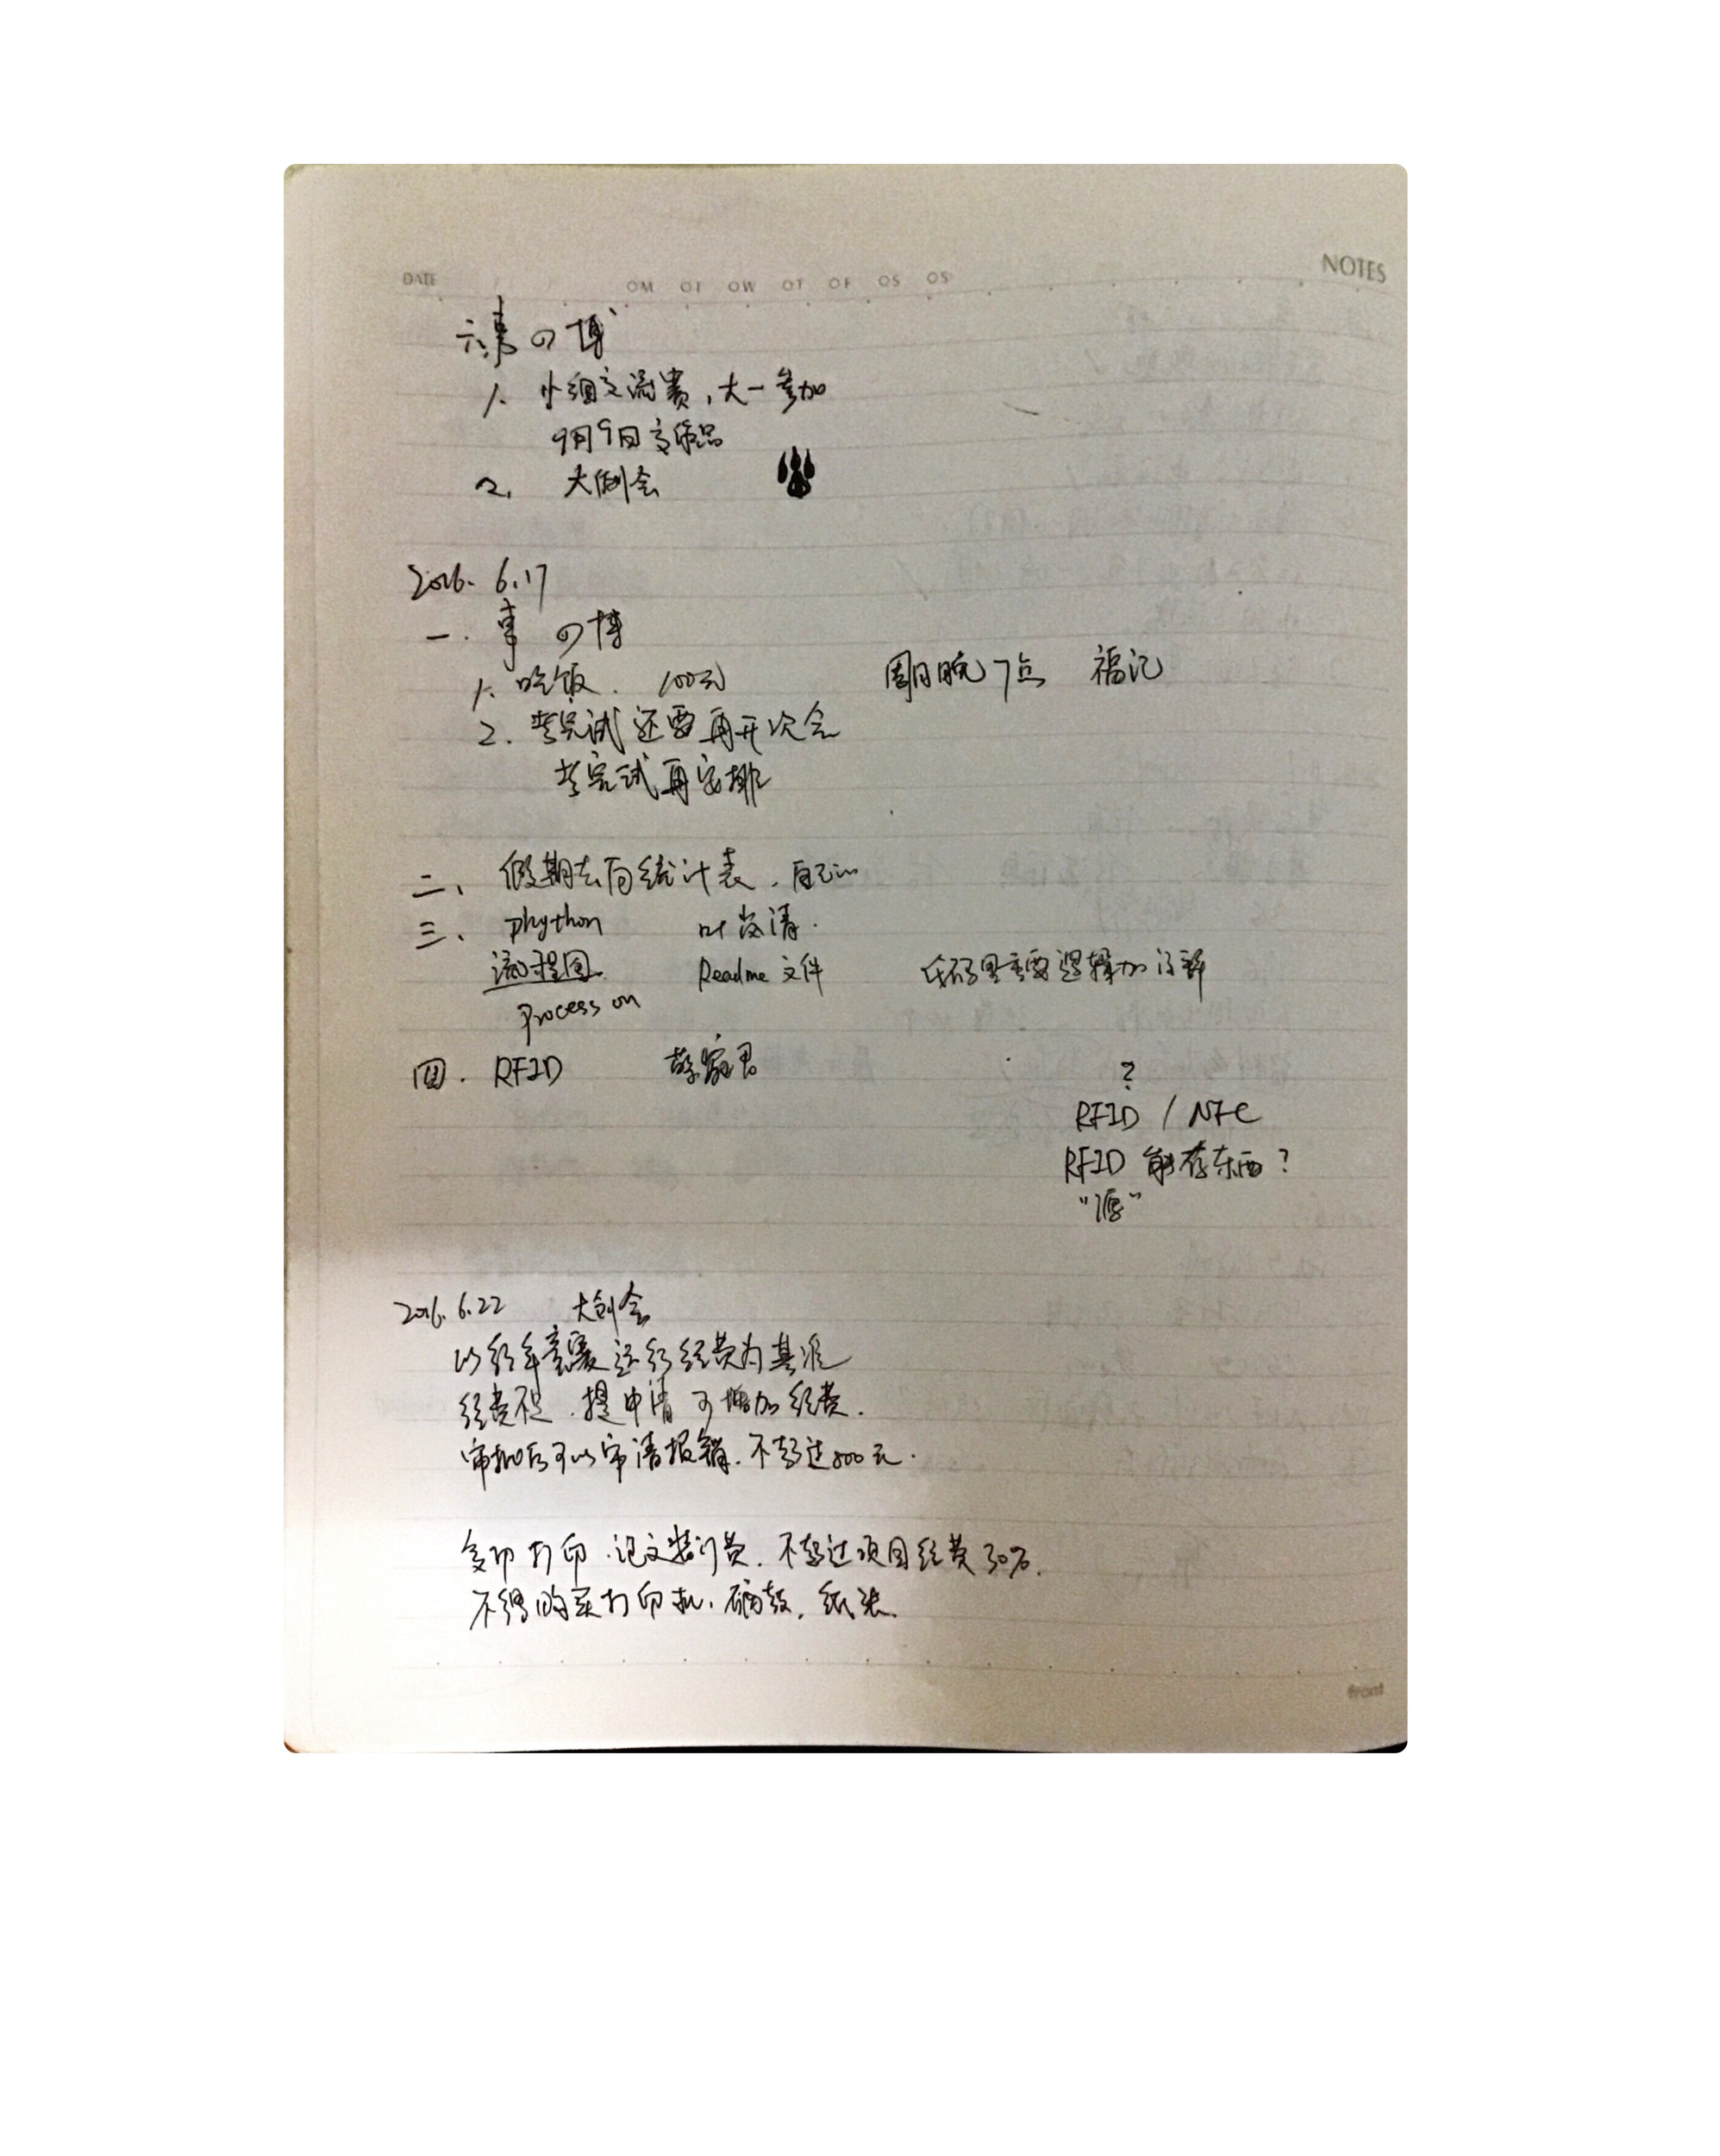 DATE OM OT OW OT OF OS OS NOTES
六、事の博
1. 小组交流赛,大一参加
9月9日交作品
2. 大创会
2016. 6.17
一. 事の博
1. 吃饭. 100元 周日晚7点 福记
2. 考完试还要再开次会
考完试再安排
二、假期去向统计表.自己
三、phython 叶
流程图 Readme 文件 代码里重要逻辑加注释
Process on
四. RFID
?
RFID / NFC
RFID 能存东西?
“源”
2016. 6.22 大创会
以经费为基准
经费不足.提申请可增加经费.
审批后可以申请报销.不超过800元.
复印打印.论文装订费.不超过项目经费30%.
不得购买打印机,硒鼓,纸张.
front